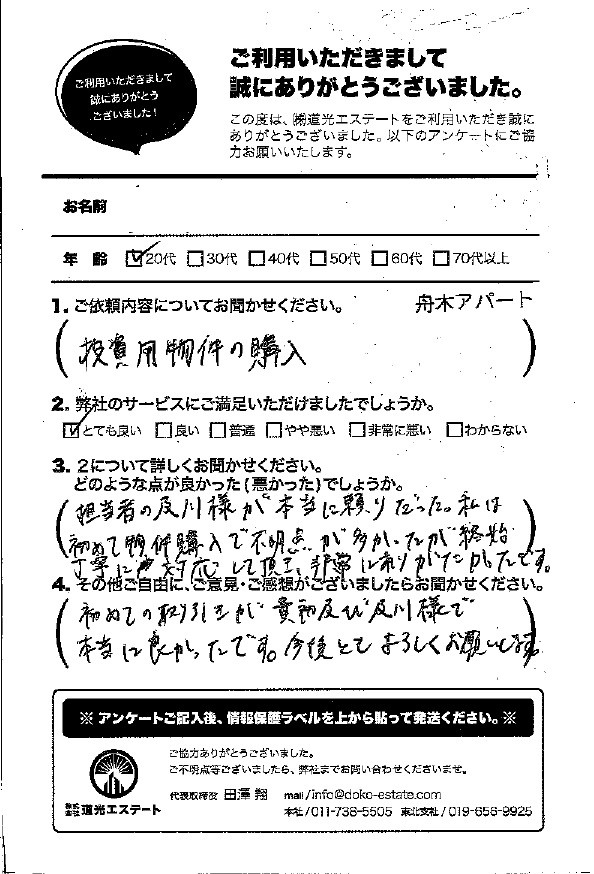 ご利用いただきまして
誠にありがとう
ございました!
ご利用いただきまして
誠にありがとうございました。
この度は、㈱道光エステートをご利用いただき誠に
ありがとうございました。以下のアンケートにご協
力お願いいたします。
お名前
年 齢 ☑20代 □30代 □40代 □50代 □60代 □70代以上
1. ご依頼内容についてお聞かせください。 舟木アパート
(投資用物件の購入)
2. 弊社のサービスにご満足いただけましたでしょうか。
☑とても良い □良い □普通 □やや悪い □非常に悪い □わからない
3. 2について詳しくお聞かせください。
どのような点が良かった(悪かった)でしょうか。
(担当者の及川様が本当に頼りだった。私は
初めて物件購入で不明点が多かったが終始
丁寧に対応して頂き、非常にありがたかったです。)
4. その他ご自由に、ご意見・ご感想がございましたらお聞かせください。
(初めての取引きが貴社及び及川様で
本当に良かったです。今後ともよろしくお願いします。)
※ アンケートご記入後、情報保護ラベルを上から貼って発送ください。※
ご協力ありがとうございました。
ご不明点等ございましたら、弊社までお問い合わせくださいませ。
代表取締役 田澤 翔 mail/info@doko-estate.com
株式会社 道光エステート
本社/011-738-5505 東北支社/019-656-9925